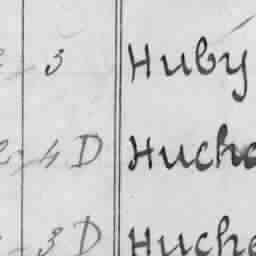 3 Huby
4 D Hucho
3 D Huche